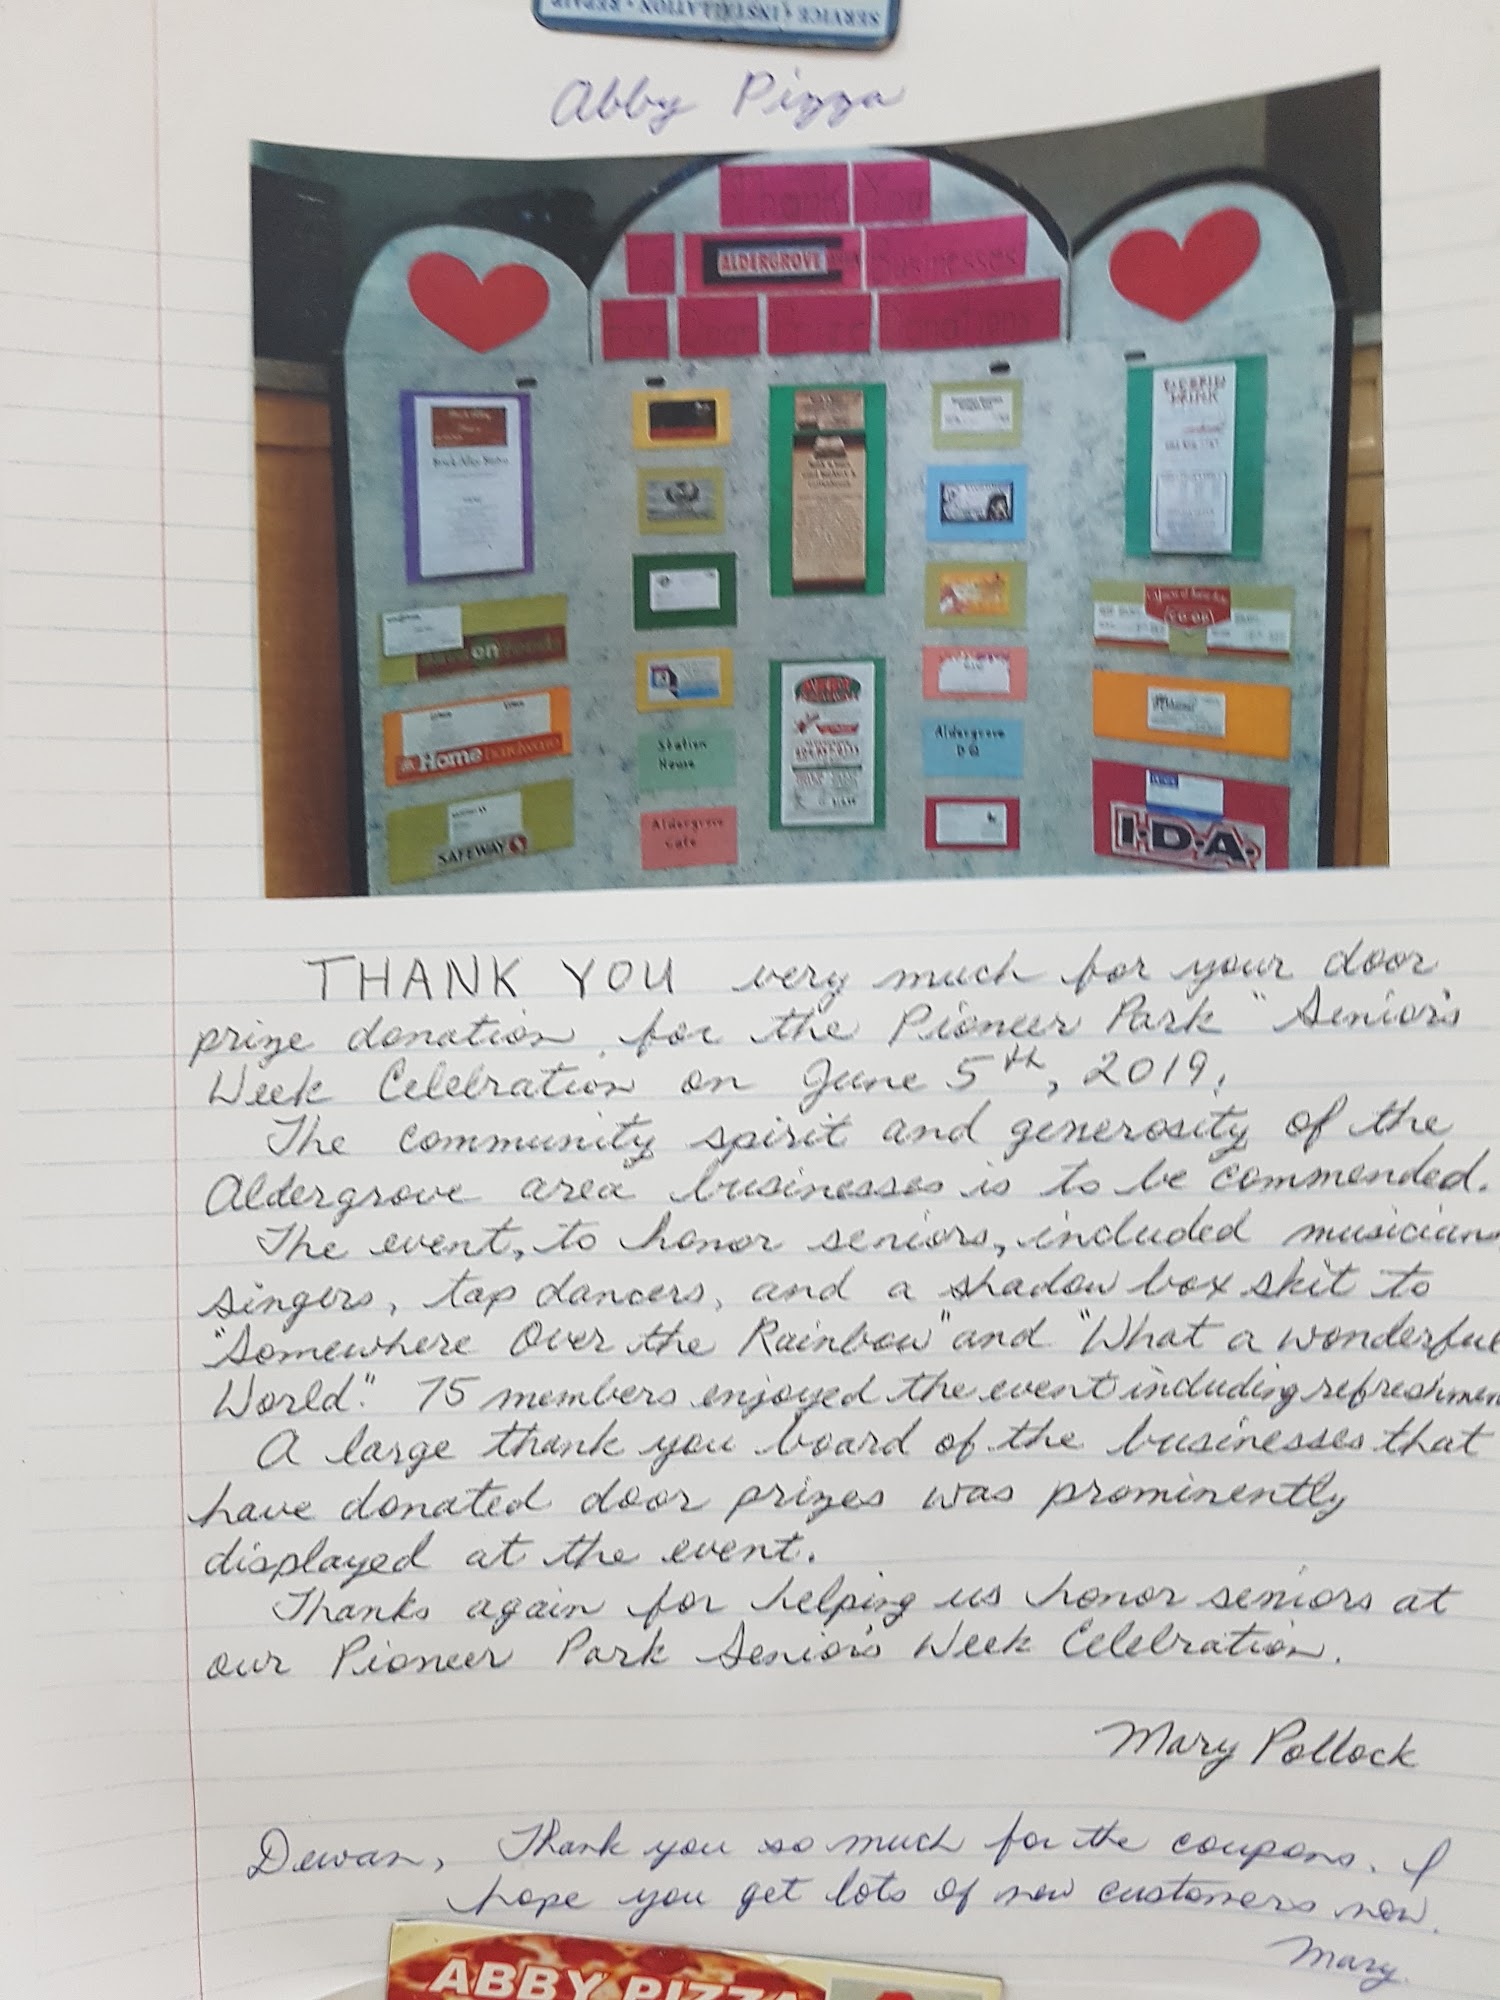 SERVICE • INSTALLATION • REPAIR
Abby Pizza
Thank You
ALDERGROVE Businesses
Door Prize Donations
EAT DRINK
on foods
Home hardware
SAFEWAY
Station House
Aldergrove Cafe
Aldergrove DQ
CO-OP
I.D.A.
THANK YOU very much for your door
prize donation for the Pioneer Park "Senior's
Week Celebration on June 5th, 2019.
The community spirit and generosity of the
Aldergrove area businesses is to be commended.
The event, to honor seniors, included musicians
singers, tap dancers, and a shadow box skit to
"Somewhere Over the Rainbow" and "What a wonderful
World". 75 members enjoyed the event including refreshmen
A large thank you board of the businesses that
have donated door prizes was prominently
displayed at the event.
Thanks again for helping us honor seniors at
our Pioneer Park Senior's Week Celebration.
Mary Pollock
Dewan, Thank you so much for the coupons. I
hope you get lots of new customers now.
Mary.
ABBY PIZZA